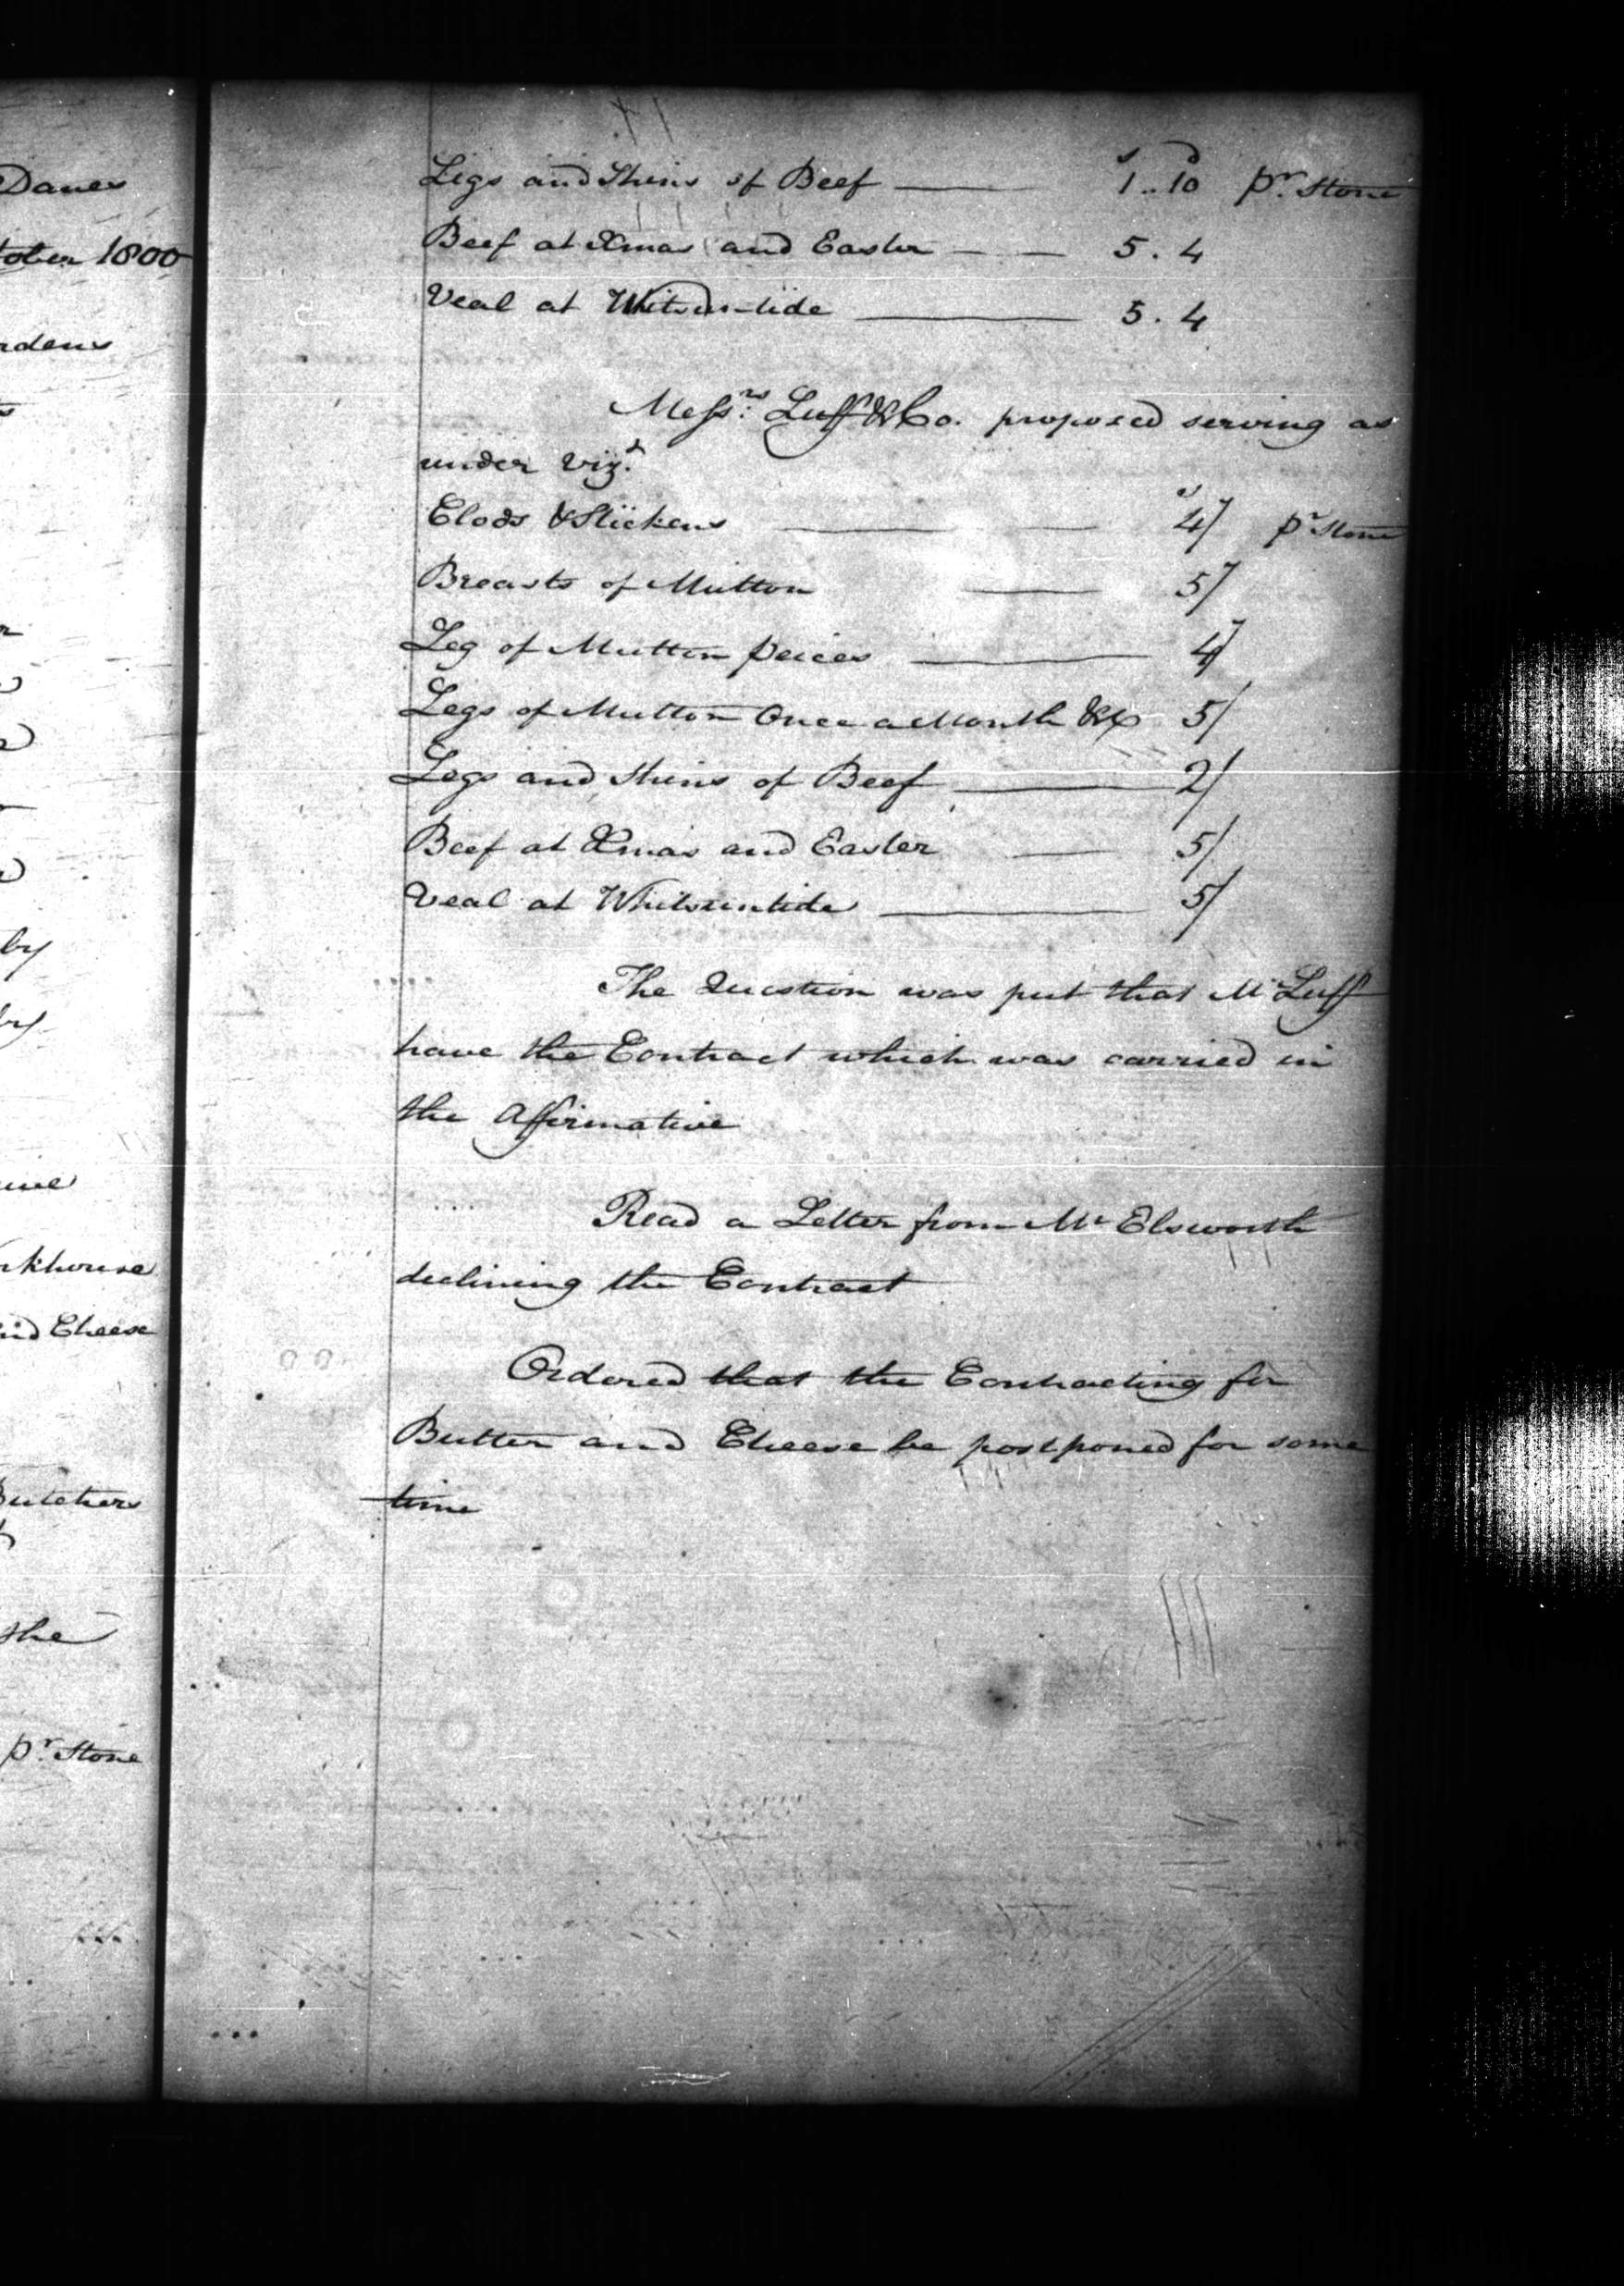 Danes
1800
Cheese
Butchers
the
pr. Stone
s d
Legs and Shins of Beef 1..10 pr. Stone
Beef at Xmas and Easter 5.4
Veal at Whitsuntide 5.4
Messrs: Luff & Co. proposed serving as
under vizt.
s
Clods & Stickens 4/ pr Stone
Breasts of Mutton 5/
Leg of Mutton peices 4/
Legs of Mutton Once a Month &c 5/
Legs and Shins of Beef 2/
Beef at Xmas and Easter 5/
Veal at Whitsuntide 5/
The Question was put that Mr Luff
have the Contract which was carried in
the Affirmative
Read a Letter from Mr Elsworth
declining the Contract
Ordered that the Contracting for
Butter and Cheese be postponed for some
time